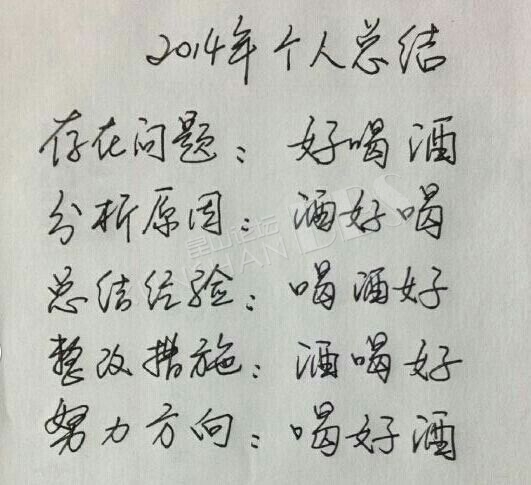 2014年个人总结
存在问题：好喝酒
分析原因：酒好喝
总结经验：喝酒好
整改措施：酒喝好
努力方向：喝好酒